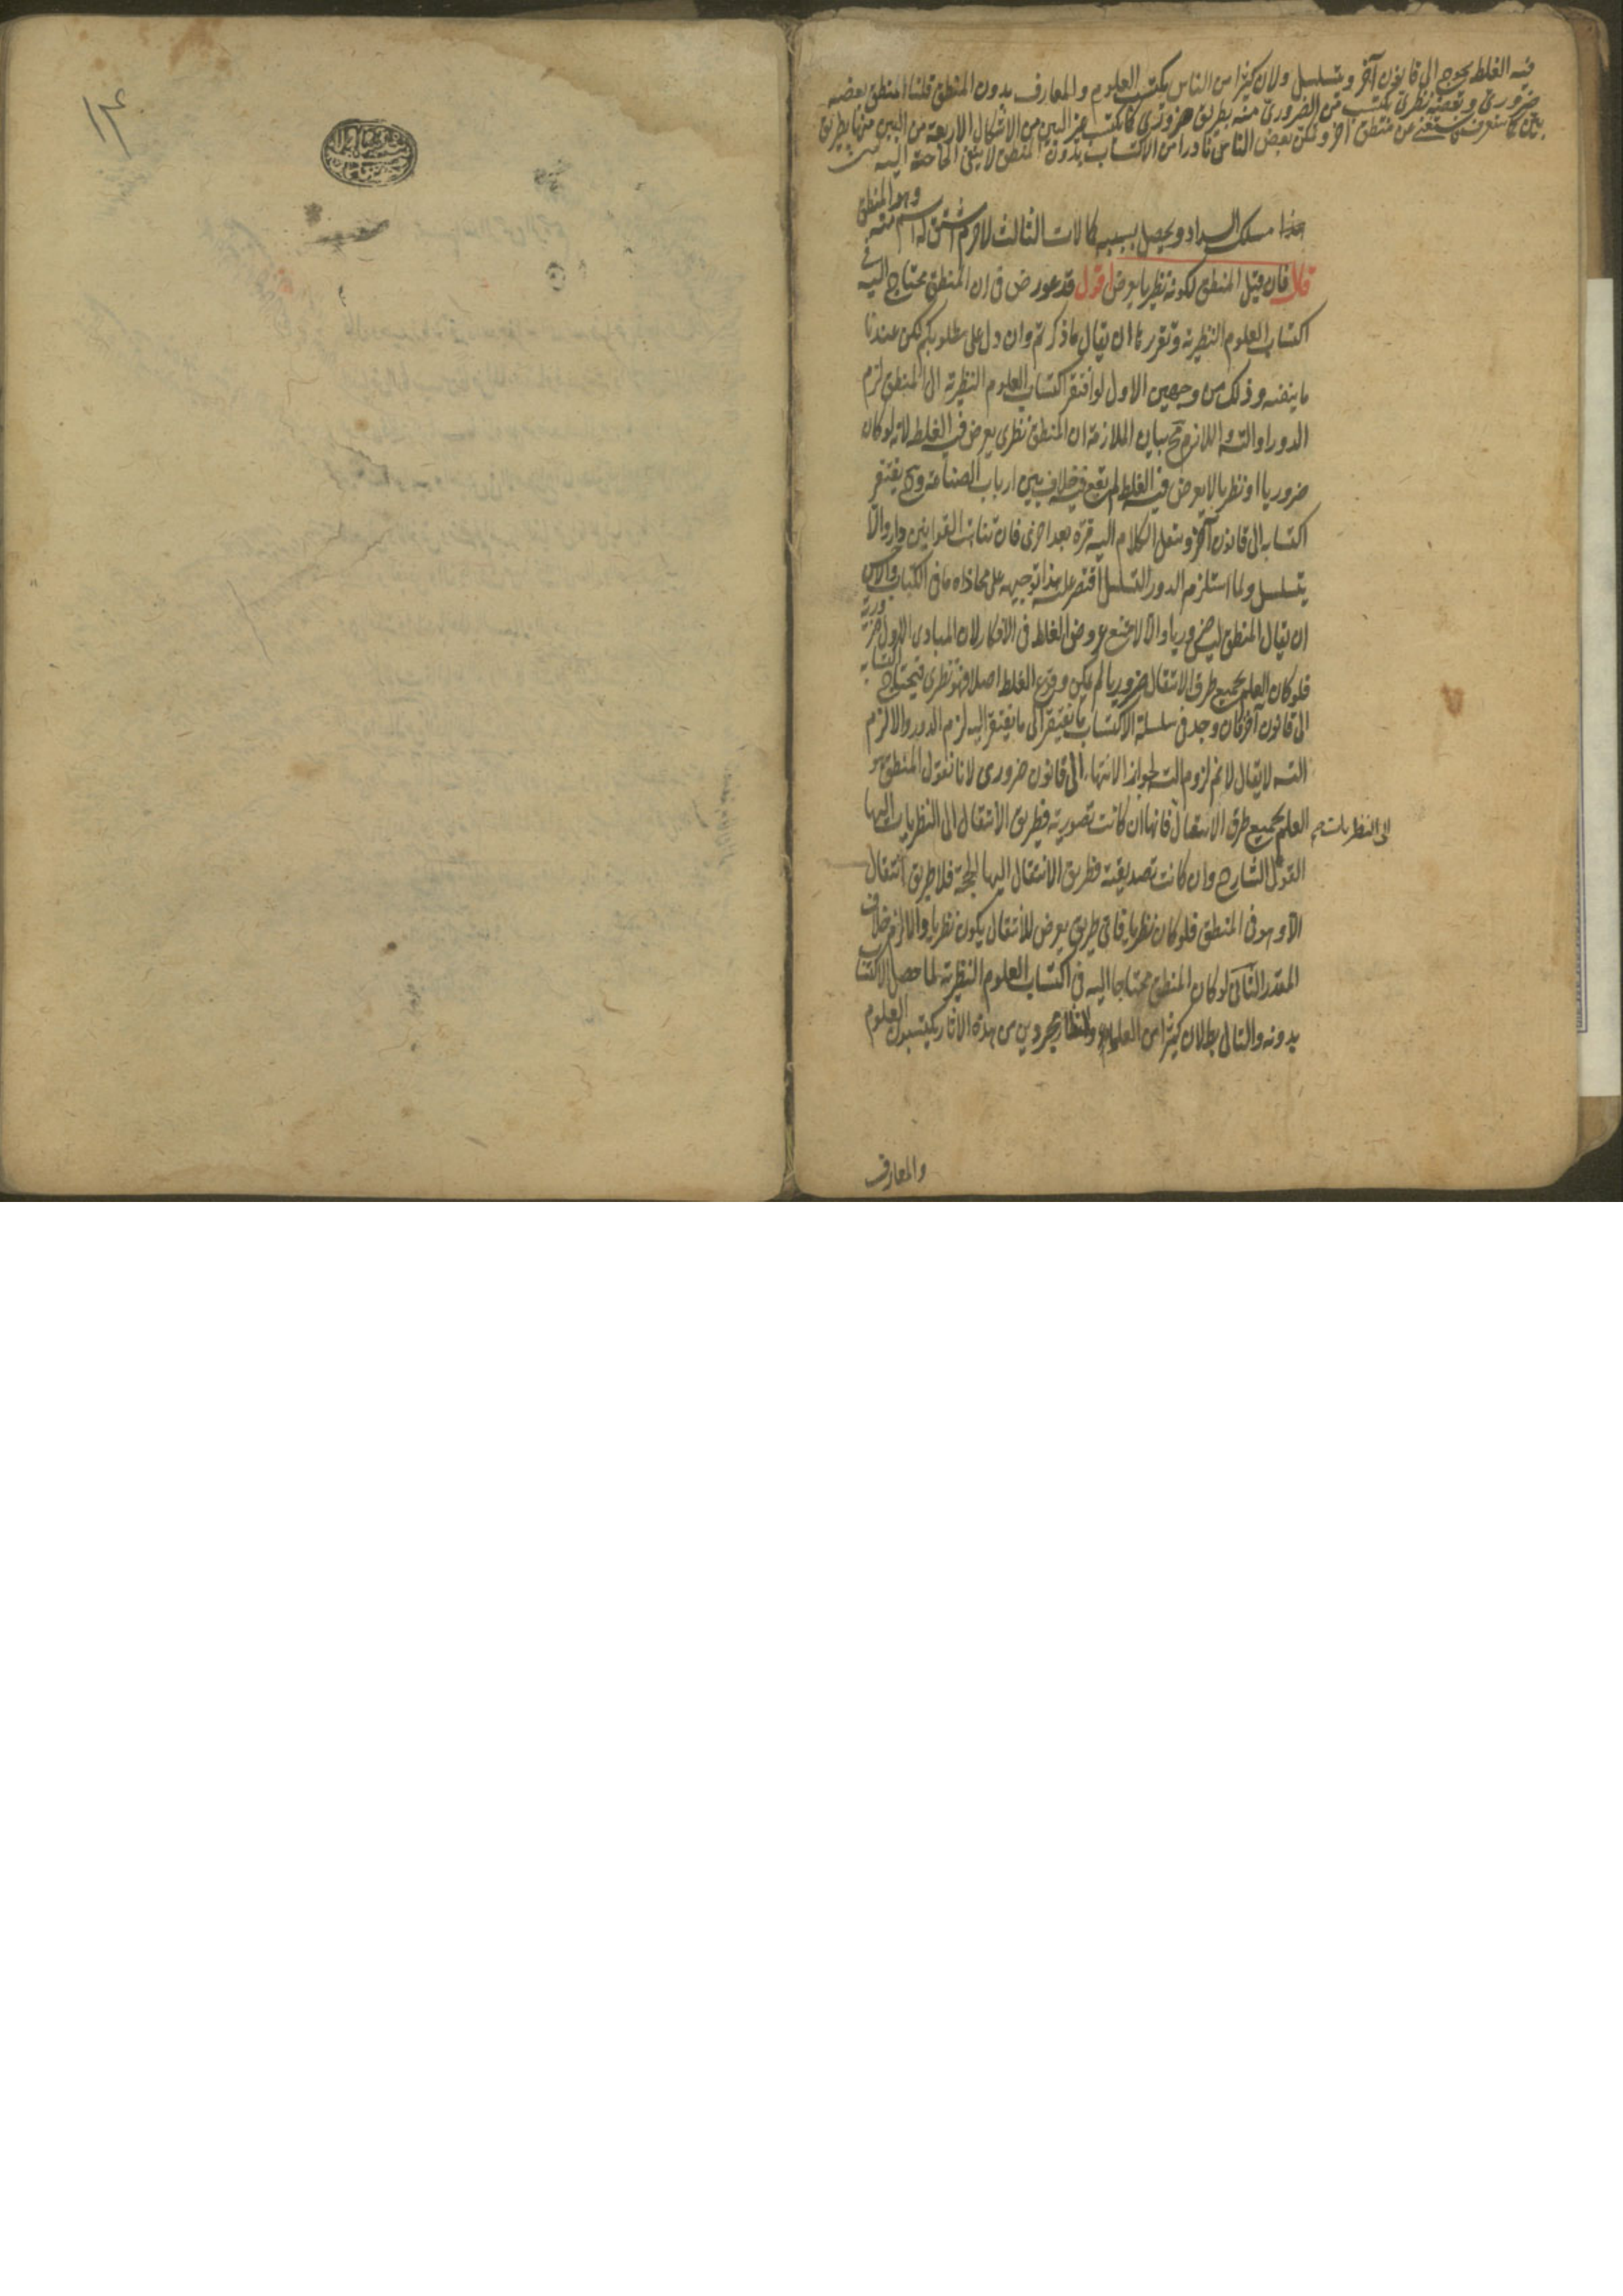 فيه الغلط يحوج الى قانون آخر ويتسلسل ولان كثيرا من الناس يكتسب العلوم والمعارف بدون المنطق قلنا المنطق بعضه
ضرورى وبعضه نظرى يكتسب من الضرورى منه بطريق ضرورى كما يكتسب غير البين من الاشكال الاربعة من البين منها بطريق
بين كما ستعرف فيستغنى عن منطق آخر وتمكن بعض الناس نادرا من الاكتساب بدون المنطق لا ينفى الحاجة اليه
هذا مسلك السداد ويحصل بسببه كمالات الثالث لاجرم اشتق له اسم منه وهو المنطق
قال فان قيل المنطق لكونه نظريا يعرض اقول قد عورض فى ان المنطق محتاج اليه فى
اكتساب العلوم النظرية وتقريرها ان يقال ما ذكرتم وان دل على مطلوبكم لكن عندنا
ما ينفيه وذلك من وجهين الاول لو افتقر اكتساب العلوم النظرية الى المنطق لزم
الدور او التسـ واللازم مح بيان الملازمة ان المنطق نظرى يعرض فيه الغلط لانه لو كان
ضروريا او نظريا لا يعرض فيه الغلط لم يقع فيه خلاف بين ارباب الصناعة وح يفتقر
اكتسابه الى قانون آخر وينقل الكلام اليه مرة بعد اخرى فان تناهت القوانين دار والا
يتسلسل ولما استلزم الدور التسلسل اقتصر عليه هذا توجيهه على محاذاة ما فى الكتاب والاولى
ان يقال المنطق ليس ضروريا والا لامتنع عروض الغلط فى الافكار لان المبادى الاول ضرورية
فلو كان العلم بجميع طرق الانتقال ضروريا لم يمكن وقوع الغلط اصلا فهو نظرى فيحتاج اكتسابه
الى قانون آخر فان وجد فى سلسلة الاكتساب ما يفتقر الى ما يفتقر اليه لزم الدور والا لزم
التسـ لا يقال لا نم لزوم التسـ لجواز الانتهاء الى قانون ضرورى لانا نقول المنطق هو
العلم بجميع طرق الانتقال الى النظريات فانها ان كانت تصورية فطريق الانتقال الى النظريات اليها
القول الشارح وان كانت تصديقية فطريق الانتقال اليها الحجة فلا طريق انتقال
الا وهو فى المنطق فلو كان نظريا فاى طريق يعرض للانتقال يكون نظريا والا لزم خلاف
المقدر الثانى لو كان المنطق محتاجا اليه فى اكتساب العلوم النظرية لما حصل الاكتساب
بدونه والتالى بط لان كثيرا من العلماء والنظار مجردين من هذه الاثار يكتسبون العلوم
والمعارف